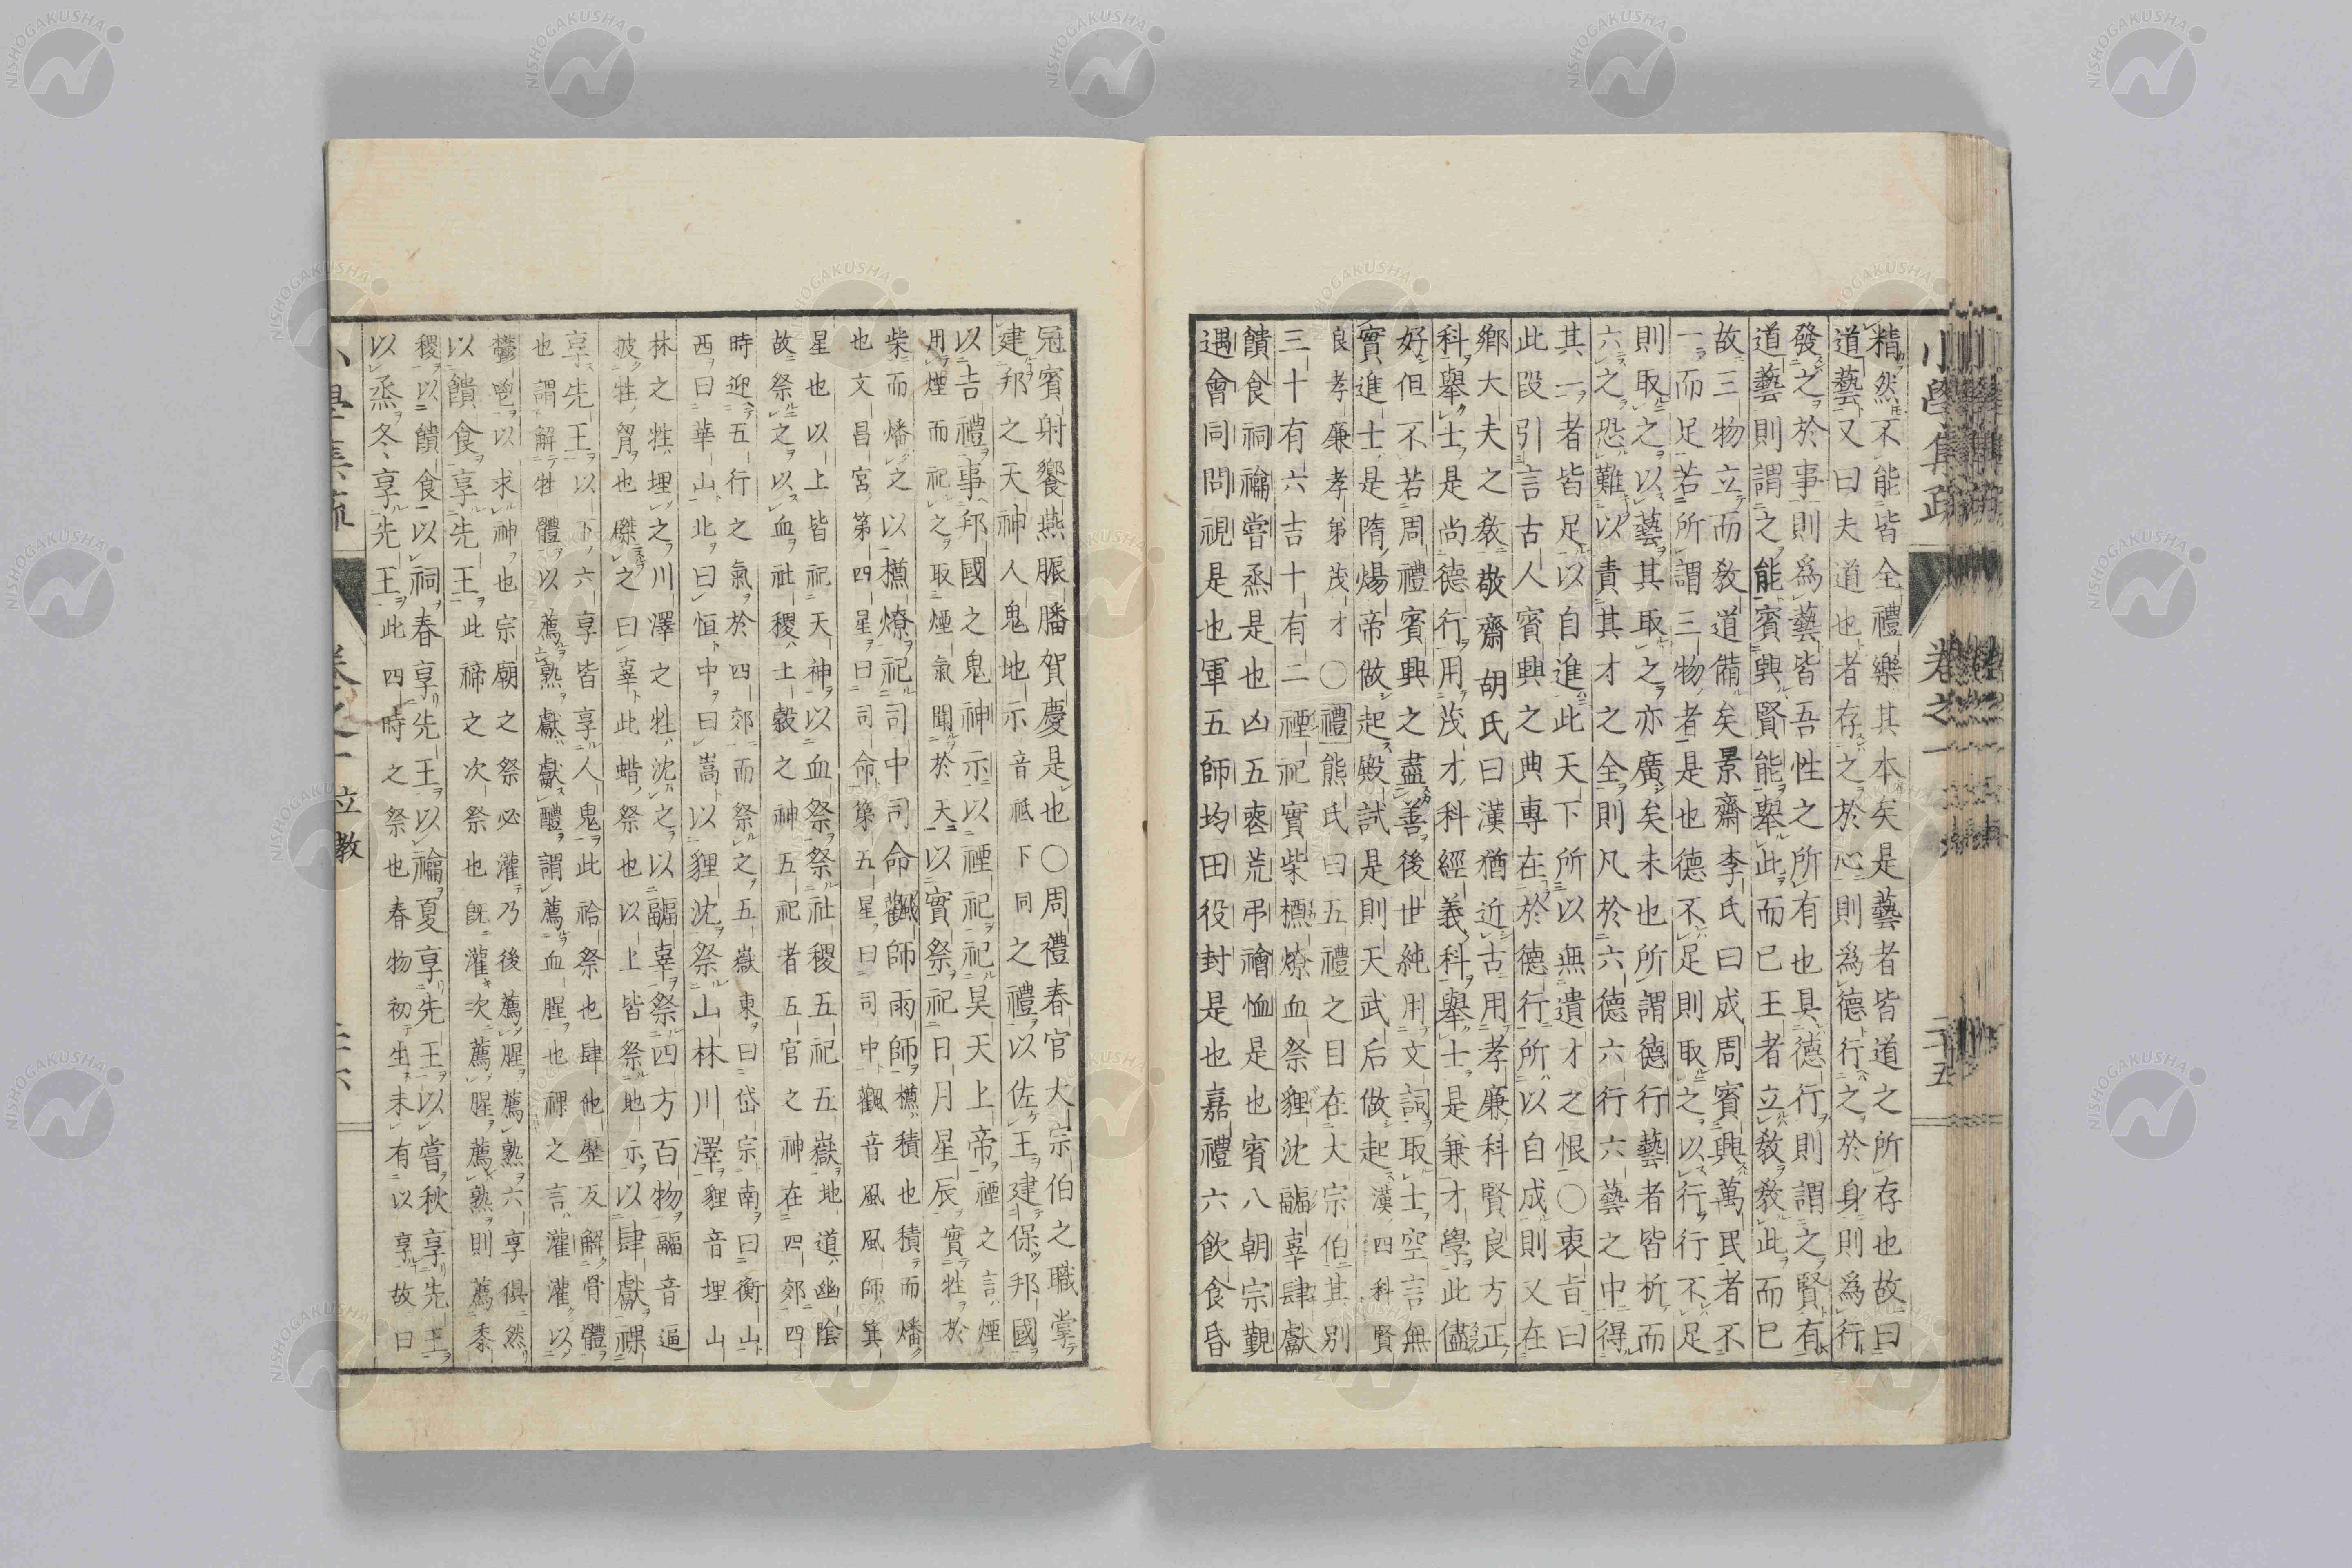 小學集疏 卷之一 二十五
精然不能皆全禮樂其本矣是藝者皆道之所存也故曰
道藝又曰夫道也者存之於心則為德行之於身則為行
發之於事則為藝皆吾性之所有也具德行則謂之賢有
道藝則謂之能賓興賢能舉此而已王者立敎敎此而已
故三物立而敎道備矣景齋李氏曰成周賓興萬民者不
一而足若所謂三物者是也德不足則取之以行行不足
則取之以藝其取之亦廣矣未也所謂德行藝者皆析而
六之恐難以責其才之全則凡於六德六行六藝之中得
其一者皆足以自進此天下所以無遺才之恨〇衷旨曰
此段引言古人賓興之典專在於德行所以自成則又在
鄉大夫之敎敬齋胡氏曰漢猶近古用孝廉科賢良方正
科舉士是尚德行用茂才科經義科舉士是兼才學此儘
好但不若周禮賓興之盡善後世純用文詞取士空言無
實進士是隋煬帝做起殿試是則天武后做起漢四科賢
良孝廉孝弟茂才〇禮熊氏曰五禮之目在大宗伯其別
三十有六吉十有二禋祀實柴槱燎血祭貍沈疈辜肆獻
饋食祠禴嘗烝是也凶五喪荒弔禬恤是也賓八朝宗覲
遇會同問視是也軍五師均田役封是也嘉禮六飲食昏
冠賓射饗燕脤膰賀慶是也〇周禮春官大宗伯之職掌
建邦之天神人鬼地示音祗下同之禮以佐王建保邦國
以吉禮事邦國之鬼神示以禋祀祀昊天上帝禋之言煙
用煙而祀之取煙氣聞於天以實祭祀日月星辰實牲於
柴而燔之以槱燎祀司中司命飌師雨師槱積也積而燔
也文昌宮第四星曰司命第五星曰司中飌音風風師箕
星也以上皆祀天神以血祭祭社稷五祀五嶽地道幽陰
故祭之以血社稷土穀之神五祀者五官之神在四郊四
時迎五行之氣於四郊而祭之五嶽東曰岱宗南曰衡山
西曰華山北曰恒中曰嵩以貍沈祭山林川澤貍音埋山
林之牲埋之川澤之牲沈之以疈辜祭四方百物疈音逼
披牲胷也磔之曰辜此蜡祭也以上皆祭地示以肆獻祼
享先王以下六享皆享人鬼此祫祭也肆他歷反解骨體
也謂解牲體以薦熟獻獻醴謂薦血腥也祼之言灌灌以
鬱鬯以求神也宗廟之祭必灌乃後薦腥薦熟六享俱然
以饋食享先王此禘之次祭也旣灌次薦腥薦熟則薦黍
稷以饋食以祠春享先王以禴夏享先王以嘗秋享先王
以烝冬享先王此四時之祭也春物初生未有以享故曰
卷之一 立敎